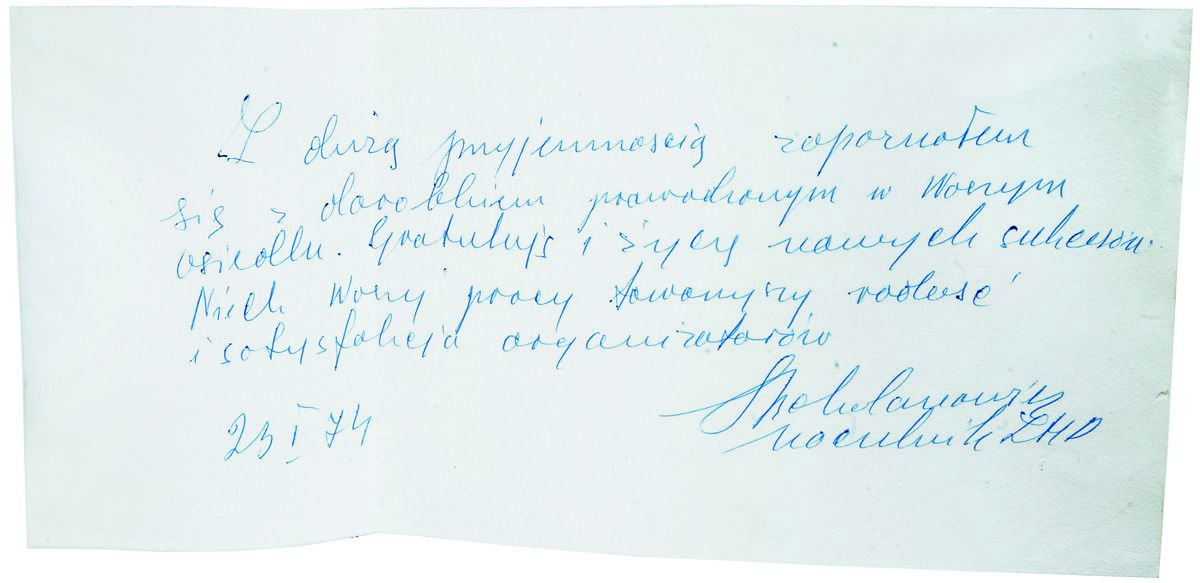 Z dużą przyjemnością zapoznałem
się z dorobkiem prowadzonym w Waszym
osiedlu. Gratuluję i życzę nowych sukcesów.
Niech Waszej pracy towarzyszy radość
i satysfakcja organizatorów
SBohdanowicz
23 I 74
naczelnik ZHP